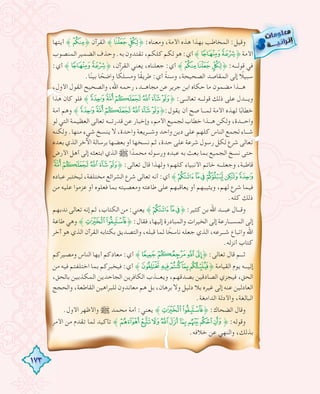 معلومات إثرائية
وقيل: المخاطب بهذا هذه الأمة، ومعناه: ﴿ لِكُلٍّ جَعَلْنَا ﴾ القرآن ﴿ مِنكُمْ ﴾ أيتها
الأمة ﴿ شِرْعَةً وَمِنْهَاجًا ﴾ أي: هو لكم كلكم، تقتدون به. وحذف الضمير المنصوب
في قوله: ﴿ لِكُلٍّ جَعَلْنَا مِنكُمْ ﴾ أي: جعلناه، يعني القرآن، ﴿ شِرْعَةً وَمِنْهَاجًا ﴾ أي:
سبيلا إلى المقاصد الصحيحة، وسنة أي: طريقًا ومسلكًا واضحًا بينًا.
هذا مضمون ما حكاه ابن جرير عن مجاهد، رحمه الله، والصحيح القول الأول،
ويدل على ذلك قوله تعالى: ﴿ وَلَوْ شَاءَ اللَّهُ لَجَعَلَكُمْ أُمَّةً وَاحِدَةً ﴾ فلو كان هذا
خطابًا لهذه الأمة لما صح أن يقول: ﴿ وَلَوْ شَاءَ اللَّهُ لَجَعَلَكُمْ أُمَّةً وَاحِدَةً ﴾ وهم أمة
واحدة، ولكن هذا خطاب لجميع الأمم، وإخبار عن قدرته تعالى العظيمة التي لو
شاء لجمع الناس كلهم على دين واحد وشريعة واحدة، لا ينسخ شيء منها. ولكنه
تعالى شرع لكل رسول شرعة على حدة، ثم نسخها أو بعضها برسالة الآخر الذي بعده
حتى نسخ الجميع بما بعث به عبده ورسوله محمدًا ﷺ الذي ابتعثه إلى أهل الأرض
قاطبة، وجعله خاتم الأنبياء كلهم؛ ولهذا قال تعالى: ﴿ وَلَوْ شَاءَ اللَّهُ لَجَعَلَكُمْ أُمَّةً
وَاحِدَةً وَلَكِن لِّيَبْلُوَكُمْ فِي مَا آتَاكُمْ ﴾ أي: أنه تعالى شرع الشرائع مختلفة ليختبر عباده
فيما شرع لهم، ويثيبهم أو يعاقبهم على طاعته ومعصيته بما فعلوه أو عزموا عليه من
ذلك كله.
وقال عبد الله بن كثير: ﴿ فِي مَا آتَاكُمْ ﴾ يعني: من الكتاب، ثم إنه تعالى ندبهم
إلى المسارعة إلى الخيرات والمبادرة إليها، فقال: ﴿ فَاسْتَبِقُوا الْخَيْرَاتِ ﴾ وهي طاعة
الله واتباع شرعه، الذي جعله ناسخًا لما قبله، والتصديق بكتابه القرآن الذي هو آخر
كتاب أنزله.
ثم قال تعالى: ﴿ إِلَى اللَّهِ مَرْجِعُكُمْ جَمِيعًا ﴾ أي: معادكم أيها الناس ومصيركم
إليه يوم القيامة ﴿ فَيُنَبِّئُكُم بِمَا كُنتُمْ فِيهِ تَخْتَلِفُونَ ﴾ أي: فيخبركم بما اختلفتم فيه من
الحق، فيجزي الصادقين بصدقهم، ويعذب الكافرين الجاحدين المكذبين بالحق،
العادلين عنه إلى غيره بلا دليل ولا برهان، بل هم معاندون للبراهين القاطعة، والحجج
البالغة، والأدلة الدامغة.
وقال الضحاك: ﴿ فَاسْتَبِقُوا الْخَيْرَاتِ ﴾ يعني: أمة محمد ﷺ والأظهر الأول.
وقوله: ﴿ وَأَنِ احْكُم بَيْنَهُم بِمَا أَنزَلَ اللَّهُ وَلَا تَتَّبِعْ أَهْوَاءَهُمْ ﴾ تأكيد لما تقدم من الأمر
بذلك، والنهي عن خلافه.
١٧٣